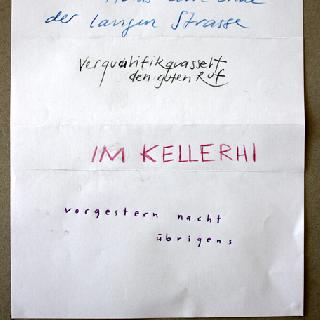 der langen Strasse
Verqualifikquassert
den guten Ruf
IM KELLERHI
vorgestern nacht
übrigens